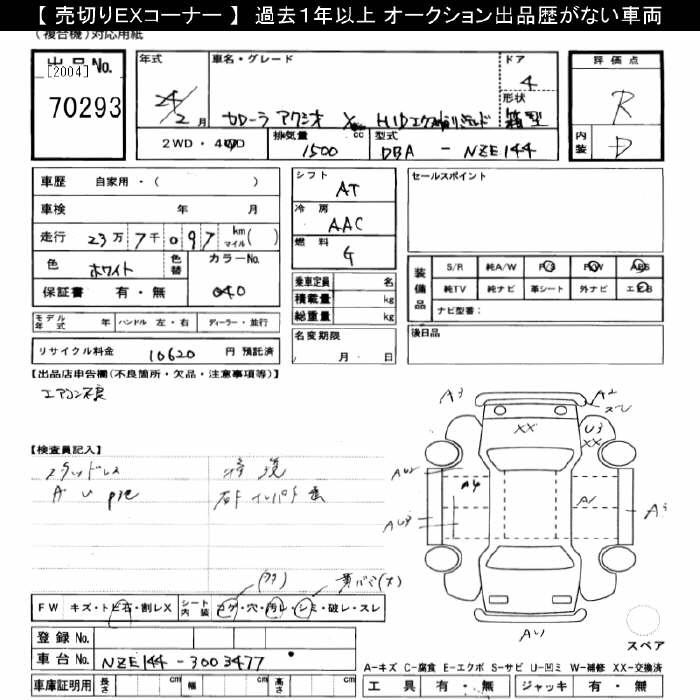 【 売切りEXコーナー 】 過去1年以上 オークション出品歴がない車両
(複合機)対応用紙
出品No.
[2004]
70293
年式
24/2月
車名・グレード
カローラ アクシオ X HIDエクストラリミテッド
ドア
4
形状
箱型
2WD・4WD
排気量
1500 cc
型式
DBA - NZE144
評価点
R
内装
D
車歴 自家用・( )
車検 年 月
走行 23万7千097 km マイル( )
色 ホワイト 色替
カラーNo.
040
保証書 有・無
モデル年式 年 ハンドル 左・右 ディーラー・並行
リサイクル料金 10620 円 預託済
シフト
AT
冷房
AAC
燃料
G
乗車定員 名
積載量 kg
総重量 kg
名変期限
月 日
セールスポイント
装備品
S/R 純A/W P/S P/W ABS
純TV 純ナビ 革シート 外ナビ エアB
ナビ型番:
後日品
【出品店申告欄(不良箇所・欠品・注意事項等)】
エアコン不良
【検査員記入】
スタッドレス
修復
A U
右F インパネ
A3
A2
U3
XX
XX
A4
A1
A3
AU1
FW キズ・トビ石・割レX
シート内装 コゲ・穴・汚レ・シミ・破レ・スレ
登録No.
車台No. NZE144-3003477
車庫証明用 長さ cm 幅 cm 高さ cm
スペア
A-キズ C-腐食 E-エクボ S-サビ U-凹ミ W-補修 XX-交換済
工具 有・無 ジャッキ 有・無